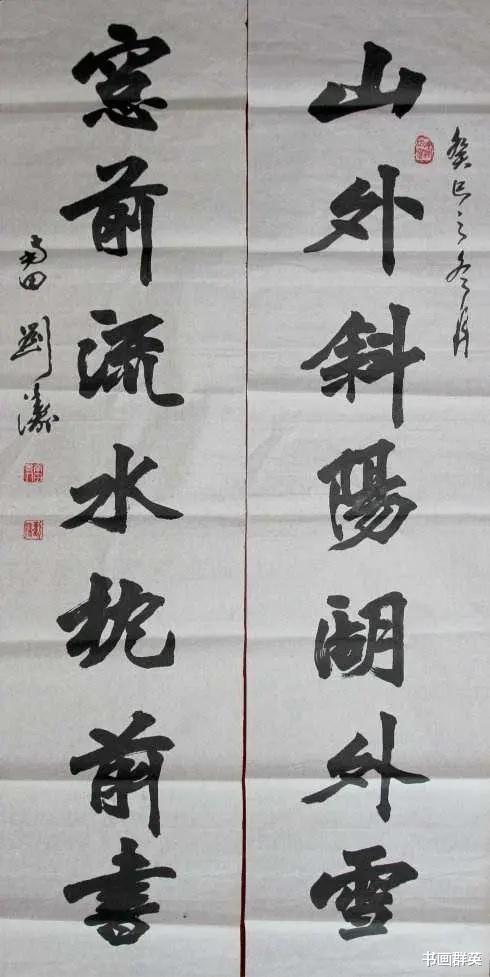 山外斜陽湖外雪
癸巳之冬月
窓前流水枕前書
田 劉
书画群英